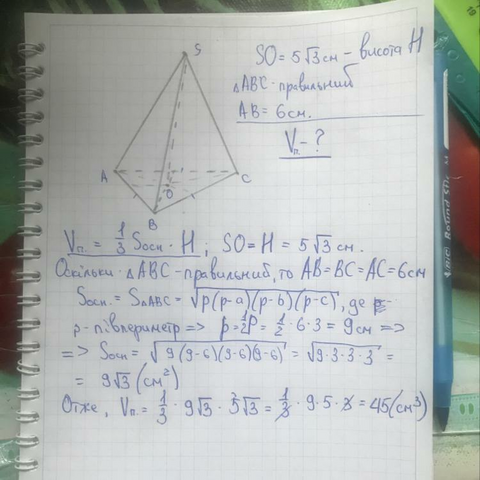 S
A
B
C
O
SO = 5√3 см - висота H
△ABC - правильний
AB = 6см.
Vп. - ?
Vп. = 1/3 Sосн · H ; SO = H = 5√3 см.
Оскільки △ABC - правильний, то AB=BC=AC=6см
Sосн. = S△ABC = √p(p-a)(p-b)(p-c), де
p - півпериметр => p = 1/2 P = 1/2 · 6 · 3 = 9см =>
=> Sосн = √9(9-6)(9-6)(9-6) = √9·3·3·3 =
= 9√3 (см²)
Отже, Vп. = 1/3 · 9√3 · 5√3 = 1/3 · 9 · 5 · 3 = 45(см³)